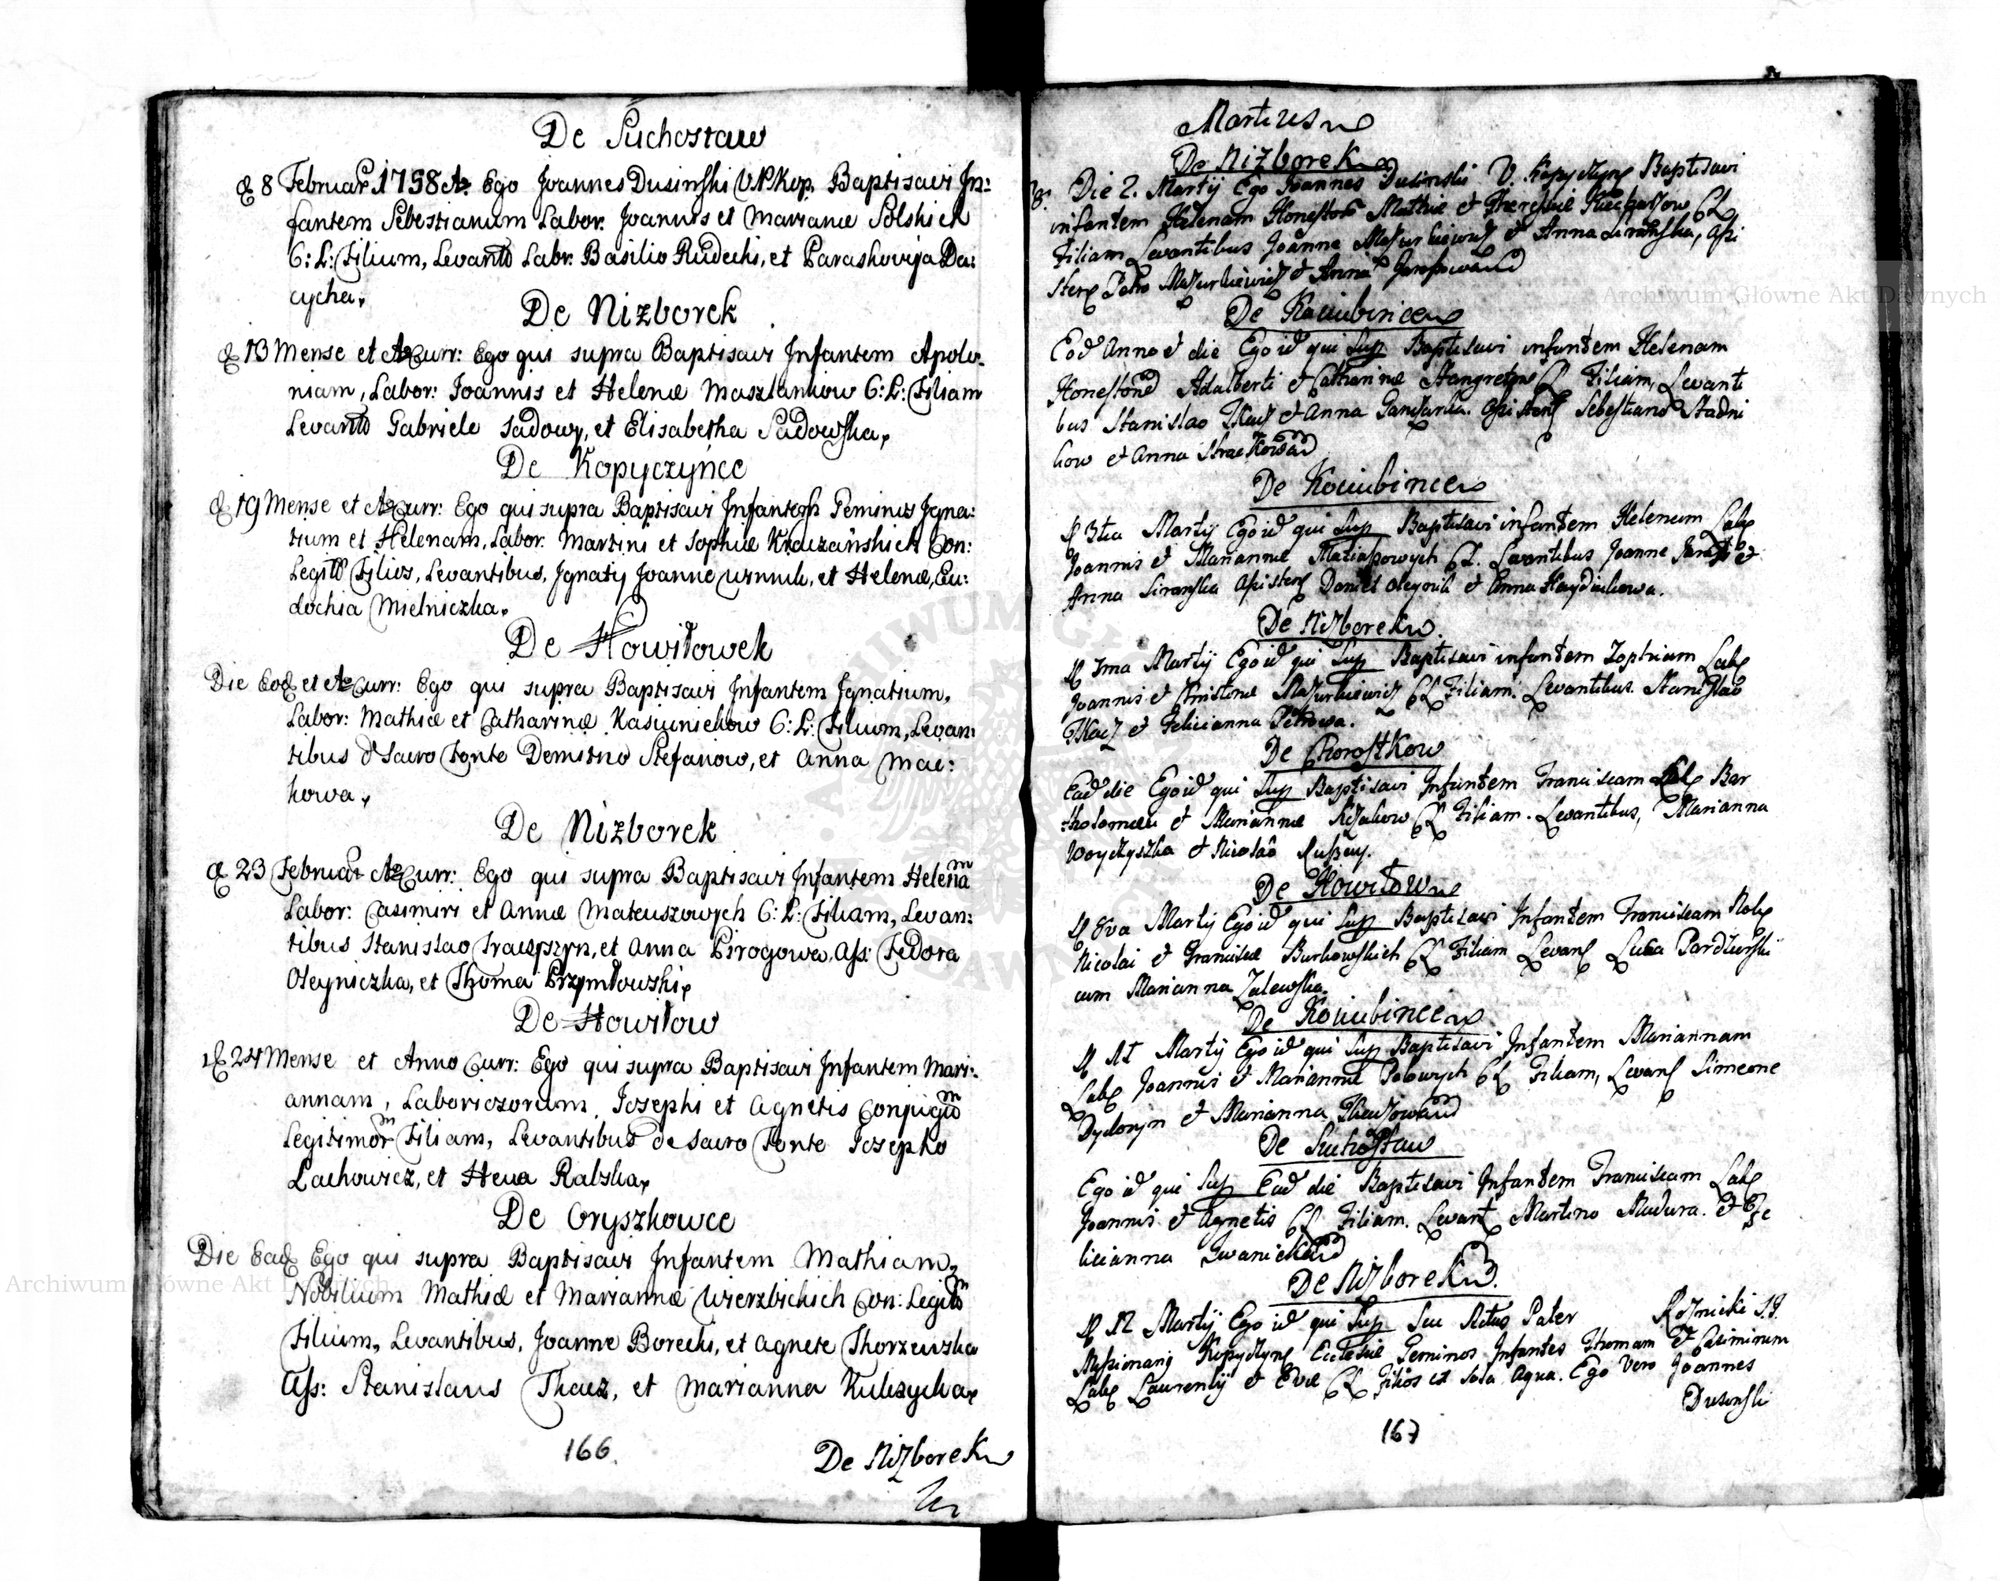 De Suchostaw
D 8 Februar 1758 Ao Ego Joannes Dusinski V.P.Kop. Baptisavi In=
fantem Sebestianum Labor: Joannis et Marianæ Solskich
C: L: Filium, Levantib Labr: Basilio Rudecki, et Paraskovija Da=
cycha.
De Nizborek
D 13 Mense et Ao Curr: Ego qui supra Baptisavi Infantem Apolo=
niam, Labor: Joannis et Helenæ Maszlankow C: L: Filiam
Levantib Gabriele Sadowy, et Elisabetha Sadowska.
De Kopyczynce
D 19 Mense et Ao Curr: Ego qui supra Baptisavi Infantes Geminos Igna=
tium et Helenam, Labor: Martini et Sophiæ Krauzanskich Con:
Legitb Filios, Levantibus, Ignaty Joanne Winnik, et Helenæ, Eu=
dochia Mielniczka.
De Howilowek
Die Eod et Ao Curr: Ego qui supra Baptisavi Infantem Ignatium,
Labor: Mathiæ et Catharinæ Kasiunichow C: L: Filium, Levan=
tibus d Sacro Fonte Demitro Stefanow, et Anna Mac=
kowa.
De Nizborek
D 23 Februar Ao Curr: Ego qui supra Baptisavi Infantem Helenam
Labor: Casimiri et Annæ Mateuszowych C: L: Filiam, Levan=
tibus Stanislao et Anna Pirogowa, Ass: Fedora
Oleyniczka, et Thoma Przymlowski.
De Howilow
D 24 Mense et Anno Curr: Ego qui supra Baptisavi Infantem Mari=
annam, Laboriozorum, Josephi et Agnetis Conjugum
Legitimor Filiam, Levantibus de Sacro Fonte Josepho
Lachowicz, et Heva Ralska.
De Oryszkowce
Die Ead Ego qui supra Baptisavi Infantem Mathiam,
Nobilium Mathiæ et Mariannæ Wierzbickich Con: Legitim
Filium, Levantibus, Joanne Borecki, et Agnete Thorzewska
Ass: Stanislaus Tkacz, et Marianna Kulczycka.
166.
De Nizborek
Martius
De Nizborek
Die 2. Martij Ego Joannes Dusinski V. Kopyczyn Baptisavi
infantem Helenam Honestor Mathiæ et Theresiæ CL
Filiam Levantibus Joanne Mazurkiewicz et Anna Siranska, Assi
sten Petro Mazurkiewicz et Anna
De Kociubince
Eod Anno et die Ego id qui Sup Baptisavi infantem Helenam
Honestor Adalberti et Catharinæ Stangretow CL Filiam, Levanti
bus Stanislao Tkacz et Anna Assisten Sebestiano Stadni
kow et Anna
De Kociubince
D 3tia Martij Ego id qui Sup Baptisavi infantem Helenam Lab
Joannis et Mariannæ CL. Levantibus Joanne et
Anna Siranska Assisten Daniel Oleynik et Anna Haydukowa.
De Nizborek.
D 7ma Martij Ego id qui Sup Baptisavi infantem Zophiam Lab
Joannis et Christinæ Mazurkiewicz CL Filiam. Levantibus. Stanislao
Tkacz et Felicianna Petrowa.
De Chorostkow
Ead die Ego id qui Sup Baptisavi Infantem Franciscam Lab Bar
tholomæi et Mariannæ CL Filiam. Levantibus, Marianna
Woyczyszka et Nicolao
De Howilow
D 8va Martij Ego id qui Sup Baptisavi Infantem Franciscam Nob
Nicolai et Franciscæ Burkowskich CL Filiam Levan Luca
cum Marianna Zalewska.
De Kociubince
D 11 Martij Ego id qui Sup Baptisavi Infantem Mariannam
Lab Joannis et Mariannæ Polowych CL Filiam, Levan Simeone
et Marianna
De Suchostaw
Ego id qui Sup Ead die Baptisavi Infantem Franciscam Lab
Joannis et Agnetis CL Filiam. Levant Martino Madura. et Fe
licianna
De Nizborek.
D 12 Martij Ego id qui Sup Seu Actus Pater Roznicki S.J.
Missionarij Kopyczyn Ecclesiæ Geminos Infantes Thomam et Casimirum
Lab Laurentij et Evæ CL Filios ex sola Aqua. Ego Vero Joannes
Dusinski
167
Archiwum Główne Akt Dawnych
Archiwum Główne Akt Dawnych